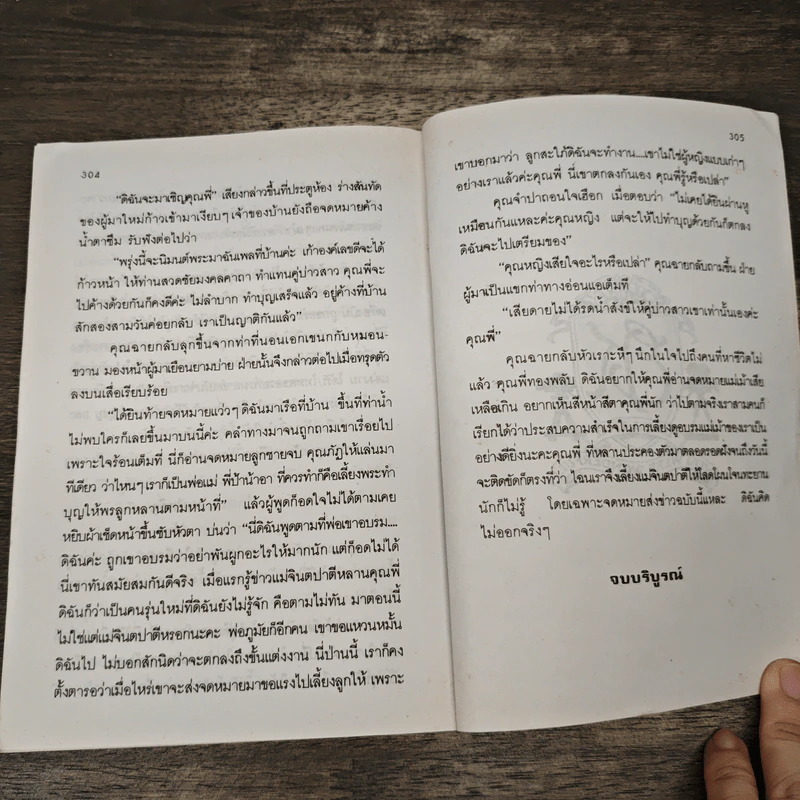 304
"ดิฉันจะมาเชิญคุณพี่" เสียงกล่าวขึ้นที่ประตูห้อง ร่างสันทัด
ของผู้มาใหม่ก้าวเข้ามาเงียบๆ เจ้าของบ้านยังถือจดหมายค้าง
น้ำตาซึม รับฟังต่อไปว่า
"พรุ่งนี้จะนิมนต์พระมาฉันเพลที่บ้านค่ะ เก้าองค์เลขดีจะได้
ก้าวหน้า ให้ท่านสวดชัยมงคลคาถา ทำแทนคู่บ่าวสาว คุณพี่จะ
ไปค้างด้วยกันก็คงดีค่ะ ไม่ลำบาก ทำบุญเสร็จแล้ว อยู่ค้างที่บ้าน
สักสองสามวันค่อยกลับ เราเป็นญาติกันแล้ว"
คุณฉายกลับลุกขึ้นจากท่าที่นอนเอกเขนกกับหมอน-
ขวาน มองหน้าผู้มาเยือนยามบ่าย ฝ่ายนั้นจึงกล่าวต่อไปเมื่อทรุดตัว
ลงบนเสื่อเรียบร้อย
"ได้ยินท้ายจดหมายแว่วๆ ดิฉันมาเรือที่บ้าน ขึ้นที่ท่าน้ำ
ไม่พบใครก็เลยขึ้นมาบนนี้ค่ะ คลำทางมาจนถูกถามเขาเรื่อยไป
เพราะใจร้อนเต็มที่ นี่ก็อ่านจดหมายลูกชายจบ คุณภัฎให้แล่นมา
ทีเดียว ว่าไหนๆ เราก็เป็นพ่อแม่ พี่ป้าน้าอา ที่ควรทำก็คือเลี้ยงพระทำ
บุญให้พรลูกหลานตามหน้าที่" แล้วผู้พูดก็อดใจไม่ได้ตามเคย
หยิบผ้าเช็ดหน้าขึ้นซับหัวตา บ่นว่า "นี่ดิฉันพูดตามที่พ่อเขาอบรม....
ดิฉันค่ะ ถูกเขาอบรมว่าอย่าพันผูกอะไรให้มากนัก แต่ก็อดไม่ได้
นี่เขาทันสมัยสมกันดีจริง เมื่อแรกรู้ข่าวแม่จินตปาตีหลานคุณพี่
ดิฉันก็ว่าเป็นคนรุ่นใหม่ที่ดิฉันยังไม่รู้จัก คือตามไม่ทัน มาตอนนี้
ไม่ใช่แต่แม่จินตปาตีหรอกนะคะ พ่อภูมัยก็อีกคน เขาขอแหวนหมั้น
ดิฉันไป ไม่บอกสักนิดว่าจะตกลงถึงขั้นแต่งงาน นี่ป่านนี้ เราก็คง
ตั้งตารอว่าเมื่อไหร่เขาจะส่งจดหมายมาขอแรงไปเลี้ยงลูกให้ เพราะ
305
เขาบอกมาว่า ลูกสะใภ้ดิฉันจะทำงาน....เขาไม่ใช่ผู้หญิงแบบเก่าๆ
อย่างเราแล้วค่ะคุณพี่ นี่เขาตกลงกันเอง คุณพี่รู้หรือเปล่า"
คุณจำปาถอนใจเฮือก เมื่อตอบว่า "ไม่เคยได้ยินผ่านหู
เหมือนกันแหละค่ะคุณหญิง แต่จะให้ไปทำบุญด้วยกันก็ตกลง
ดิฉันจะไปเตรียมของ"
"คุณหญิงเสียใจอะไรหรือเปล่า" คุณฉายกลับถามขึ้น ฝ่าย
ผู้มาเป็นแขกท่าทางอ่อนแอเต็มที
"เสียดายไม่ได้รดน้ำสังข์ให้คู่บ่าวสาวเขาเท่านั้นเองค่ะ
คุณพี่"
คุณฉายกลับหัวเราะหึๆ นึกในใจไปถึงคนที่หาชีวิตไม่
แล้ว คุณพี่ทองพลับ ดิฉันอยากให้คุณพี่อ่านจดหมายแม่ม้าเฮีย
เหลือเกิน อยากเห็นสีหน้าสีตาคุณพี่นัก ว่าไปตามจริงเราสามคนก็
เรียกได้ว่าประสบความสำเร็จในการเลี้ยงดูอบรมแม่เม้าของเราเป็น
อย่างดียิ่งนะคะคุณพี่ ที่หลานประคองตัวมาตลอดรอดฝั่งจนถึงวันนี้
จะติดขัดก็ตรงที่ว่า ไฉนเราจึงเลี้ยงแม่จินตปาตีให้โลดโผนโจนทะยาน
นักก็ไม่รู้ โดยเฉพาะจดหมายส่งข่าวฉบับนี้แหละ ดิฉันคิด
ไม่ออกจริงๆ
จบบริบูรณ์